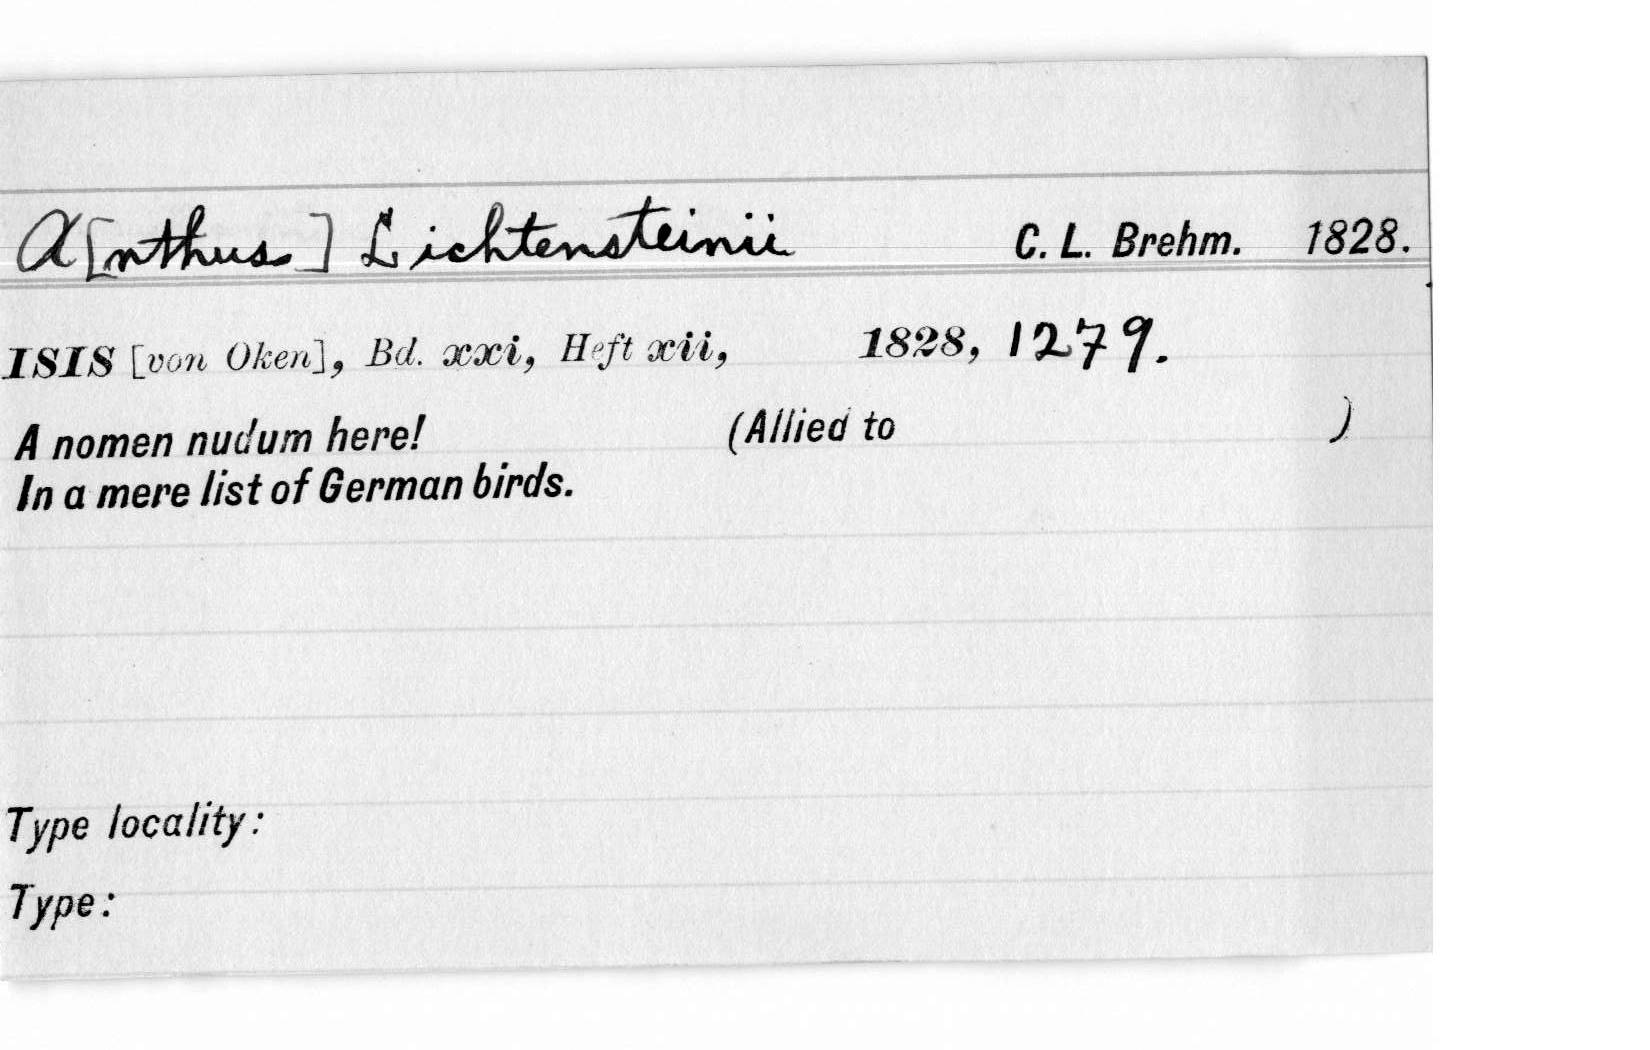 A[nthus] Lichtensteinii C. L. Brehm. 1828.
ISIS [von Oken], Bd. xxi, Heft xii, 1828, 1279.
A nomen nudum here! (Allied to )
In a mere list of German birds.
Type locality:
Type: